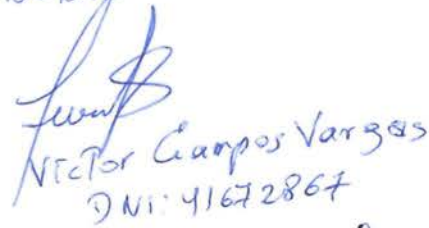 Victor Campos Vargas
DNI: 41672867